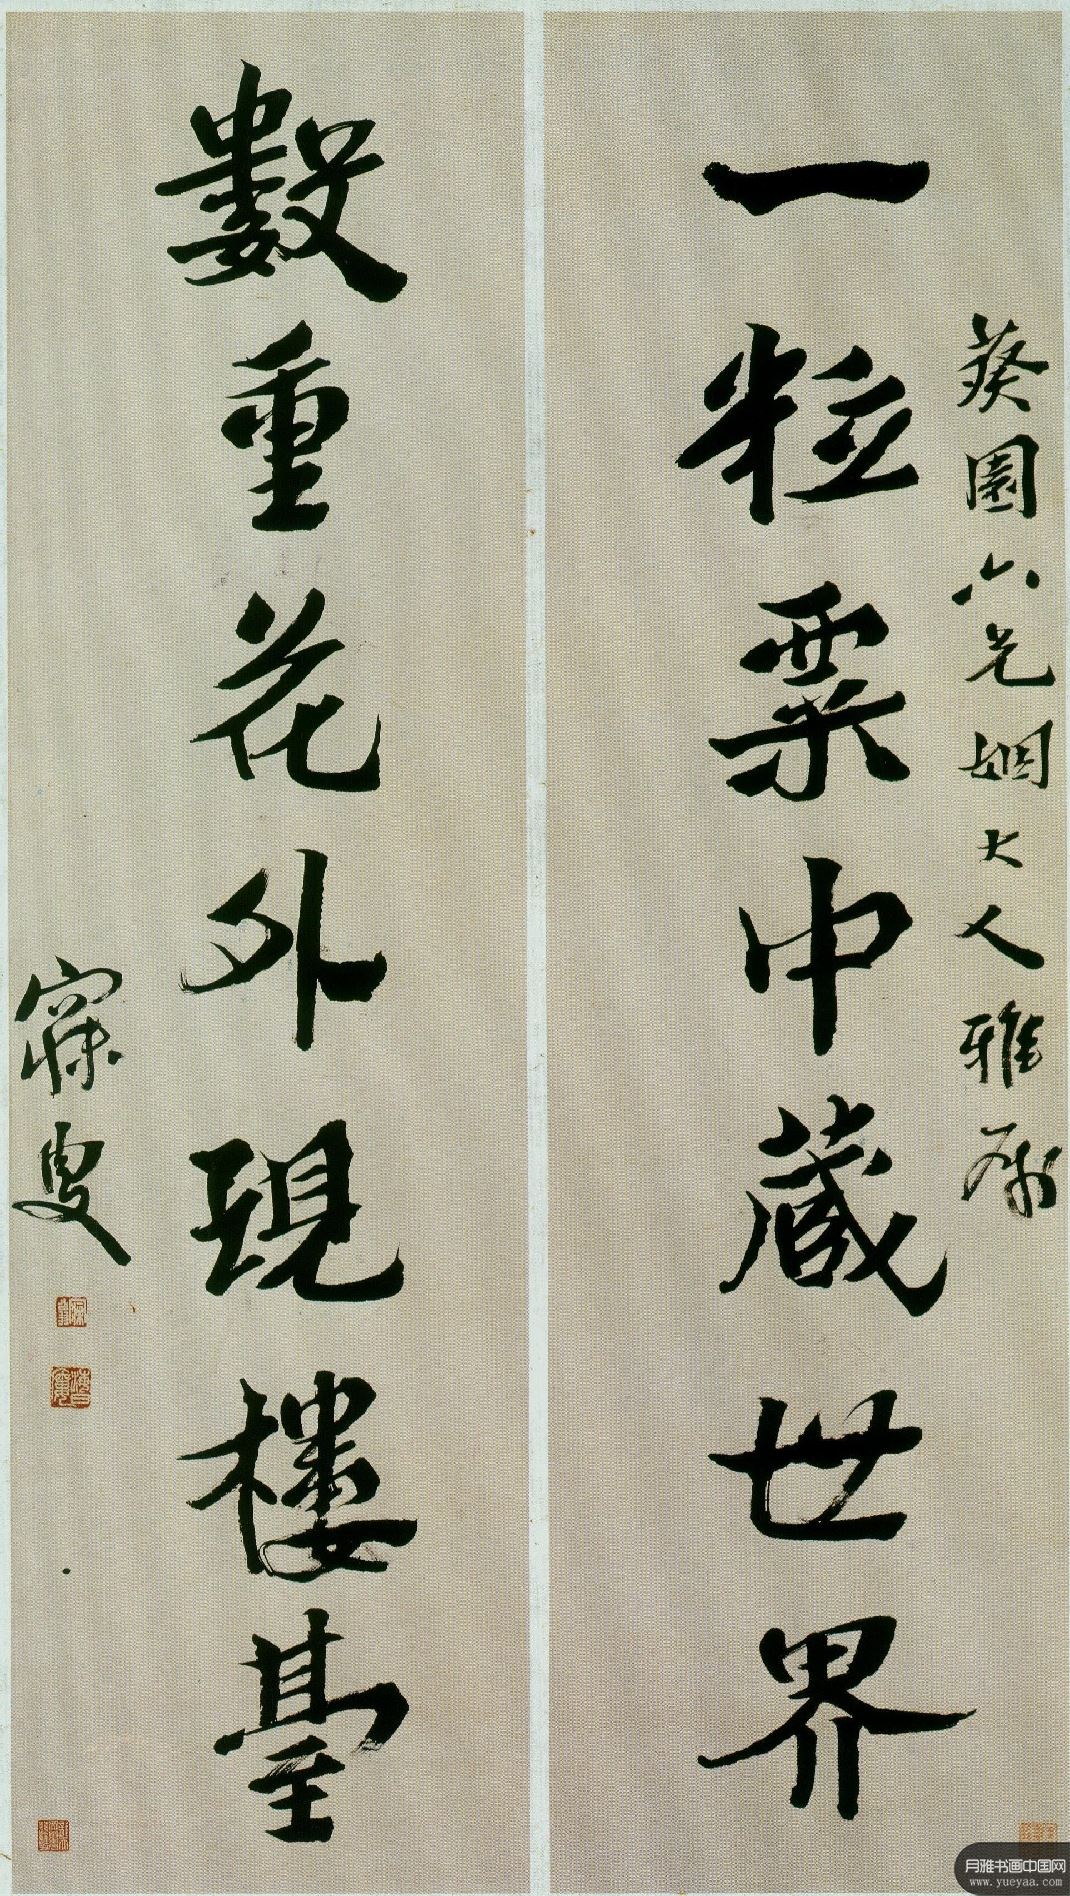 葵園六兄姻大人雅屬
一粒粟中藏世界
數重花外現樓臺
寐叟
月雅书画中国网
www.yueyaa.com